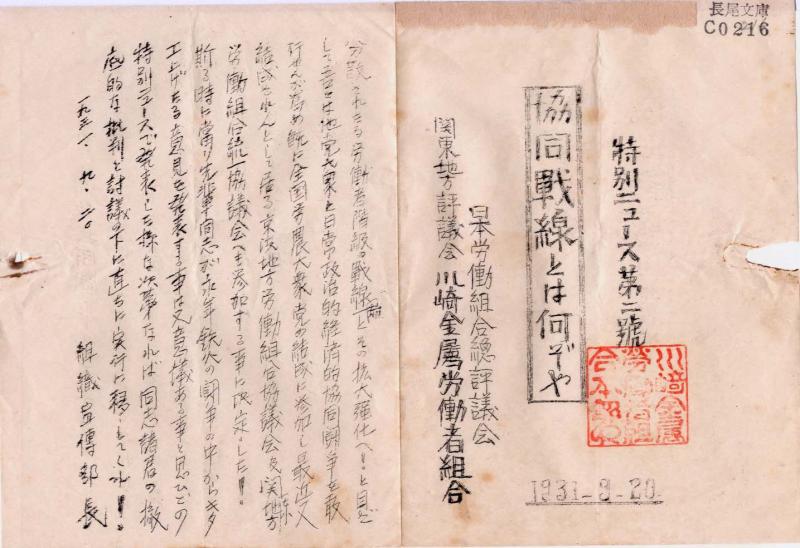 長尾文庫
C0216
特別ニュース第二號
協同戰線とは何ぞや
日本労働組合總評議会
関東地方評議会 川崎金属労働者組合
1931-9-20
分散されたる労働者階級の戰線 とその拡大強化へ！と目ざ
して 日常政治的経済的協同闘争を敢
行せんが為め既に全国労農大衆党の結成に参加し最近又
結成されんとして居る京浜地方労働組合協議会及関東地方
労働組合統一協議会へも参加する事に決定した！
斯る時に當り先輩同志が永年鉄火の闘争の中からキタ
エ上げたる意見を発表する事は又意義ある事と思ひこの
特別ニュースで発表した様な次第なれば同志諸君の徹
底的な批判と討議の下に直ちに実行に移してくれ！
一九三一、九、二〇
組織宣傳部長